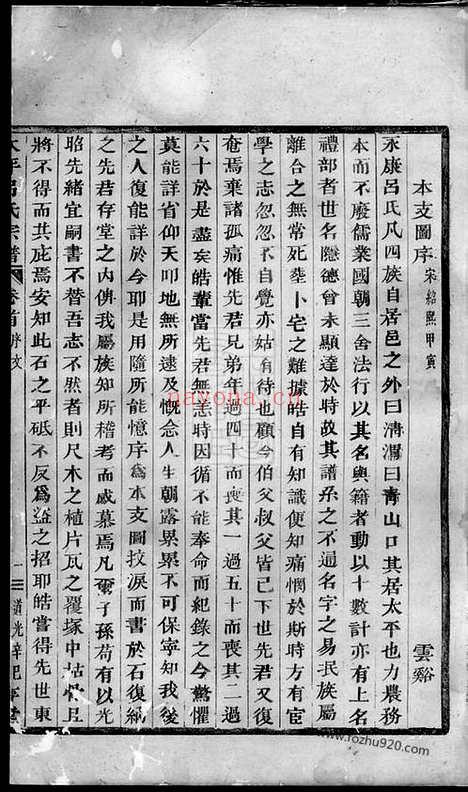 本支圖序 宋紹熙甲寅 雲谿
永康呂氏凡四族自居邑之外曰淸渭曰靑山口其居太平也力農務
本而不廢儒業國朝三舍法行以其名與籍者動以十數計亦有上名
禮部者世名隱德曾未顯達於時故其譜系之不通名字之易民族屬
離合之無常死塟卜宅之難據皓自有知識便知痛憫於斯時方有宦
學之志忽忽不自覺亦姑有待也顧今伯父叔父皆已下世先君又復
奄焉棄諸孤痛惟先君兄弟年過四十而喪其一過五十而喪其二過
六十於是盡矣皓輩當先君無恙時因循不能奉命而紀錄之今驚懼
莫能詳省仰天叩地無所逮及慨念人生朝露累累不可保寧知我後
之人復能詳於今耶是用隨所能憶序爲本支圖抆淚而書於石復納
之先君存堂之內俾我屬族知所稽考而感慕焉凡爾子孫苟有以光
昭先緖宜嗣書不替吾志不然者則尺木之植片瓦之覆塚中枯
將不得而共庇焉安知此石之平砥不反爲盜之招耶皓嘗得先世東
太平呂氏宗譜 卷首序文 一 道光
naxona.cn
www.fozhu920.com